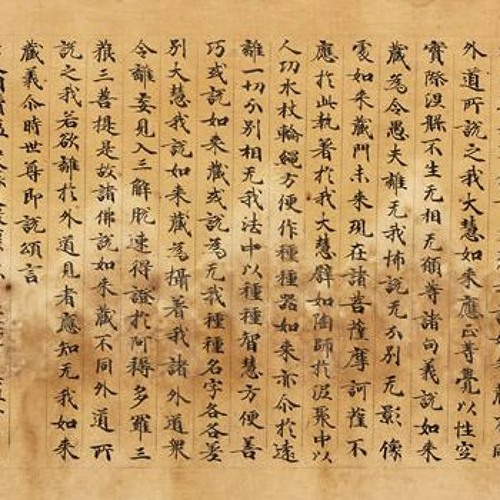 外道所說之我大慧如來應正等覺以性空
實際涅槃不生无相无願等諸句義說如来
藏為令愚夫離无我怖說无分別无影像
處如来藏門未来現在諸菩薩摩訶薩不
應於此執著於我大慧譬如陶師於泥聚中以
人功水杖輪繩方便作種種器如来亦尒於遠
離一切分別相无我法中以種種智慧方便善
巧或說如来藏或說為无我種種名字各各差
別大慧我說如来藏為攝著我諸外道衆
令離妄見入三解脫速得證於阿耨多羅三
藐三菩提是故諸佛說如来藏不同外道所
說之我若欲離於外道見者應知无我如来
藏義尒時世尊即說頌言